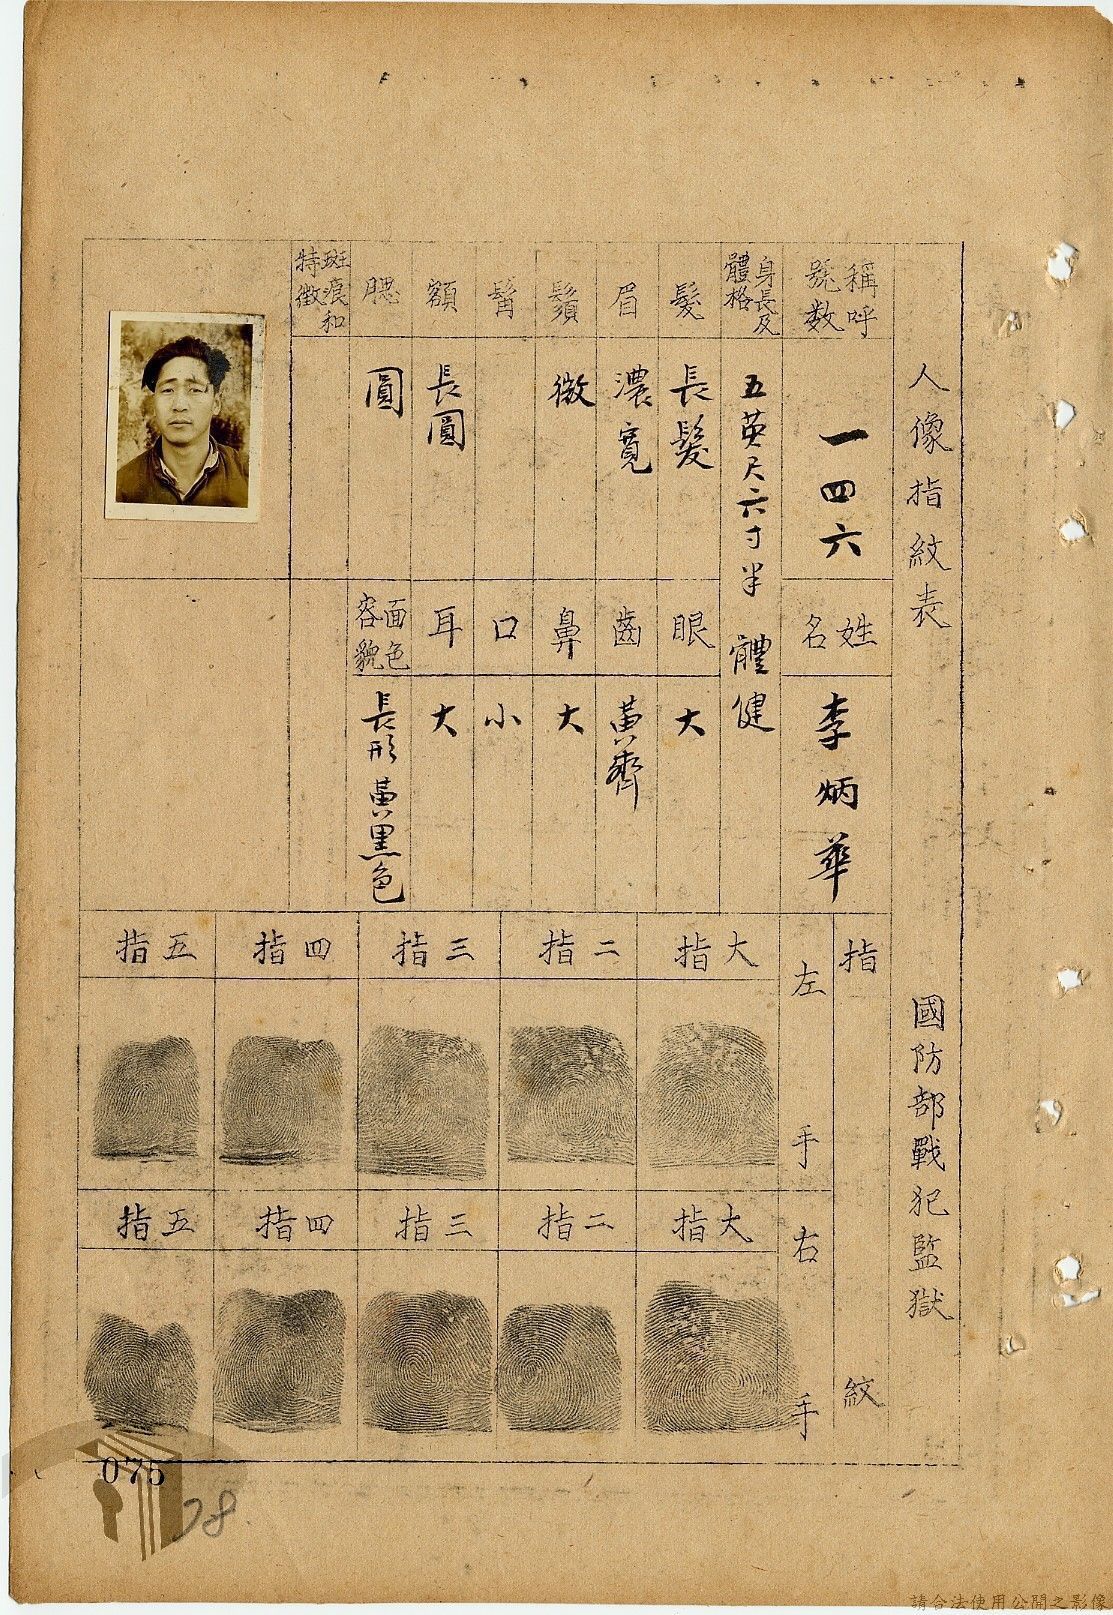 人像指紋表 國防部戰犯監獄
稱呼號数
一四六
姓名
李炳華
身長及體格
五英尺六寸半 體健
髮
長髮
眼
大
眉
濃寬
齒
黃齊
鬚
微
鼻
大
髯
口
小
額
長圓
耳
大
腮
圓
面色容貌
長形黃黑色
斑痕和特徵
指紋
左手
大指
二指
三指
四指
五指
右手
大指
二指
三指
四指
五指
075
78.
請合法使用公開之影像